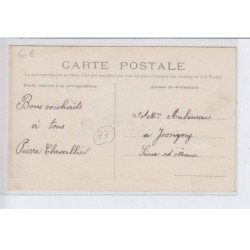 G-6
CARTE POSTALE
Partie réservée à la correspondance
Adresse du destinataire
Bons souhaits
à tous
Pierre Chevallier
77
Aubineau
à Jossigny
Seine et Marne